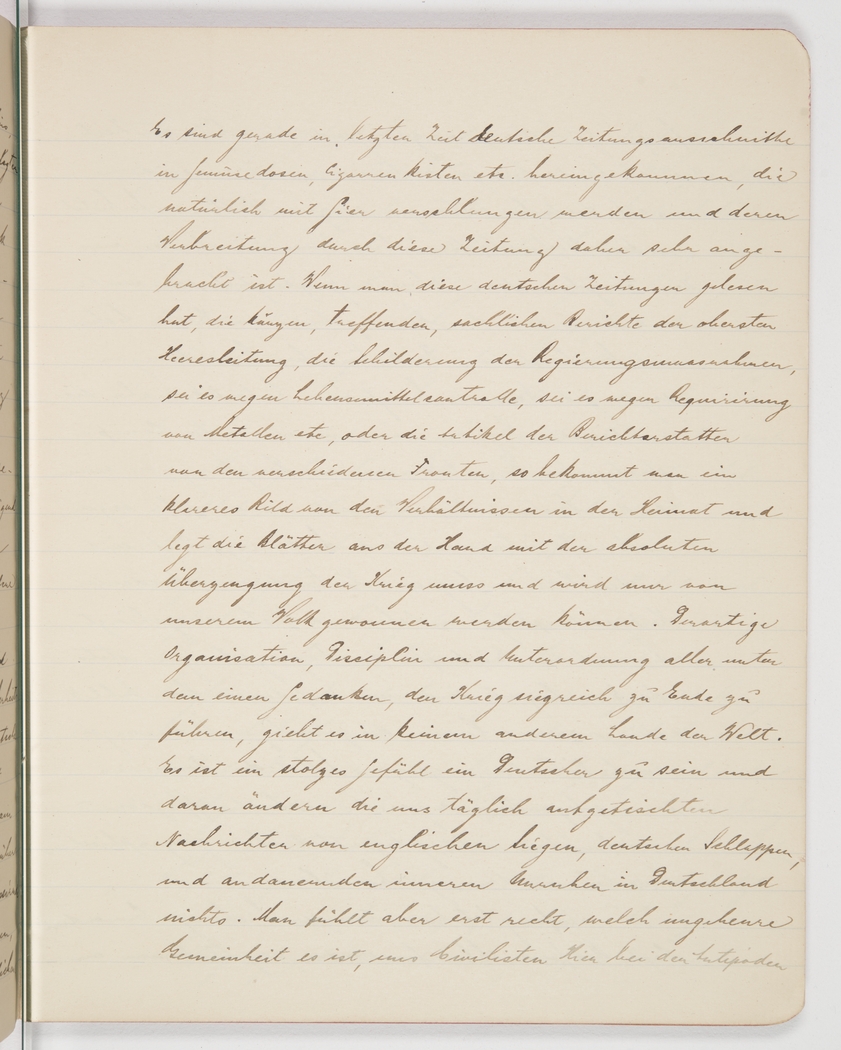 Es sind gerade in letzter Zeit deutsche Zeitungsausschnitte
in Gemüsedosen, Cigarrenkisten etc. hereingekommen, die
natürlich mit Gier verschlungen werden und deren
Verbreitung durch diese Zeitung daher sehr ange-
bracht ist. Wenn man diese deutschen Zeitungen gelesen
hat, die kurzen, treffenden, sachlichen Berichte der obersten
Heeresleitung, die Schilderung der Regierungsmassnahmen,
sei es wegen Lebensmittelcontrolle, sei es wegen Requirirung
von Metallen etc, oder die Artikel der Berichterstatter
von den verschiedenen Fronten, so bekommt man ein
klareres Bild von den Verhältnissen in der Heimat und
legt die Blätter aus der Hand mit der absoluten
Überzeugung der Krieg muss und wird nur von
unserem Volk gewonnen werden können. Derartige
Organisation, Disciplin und Unterordnung aller unter
den einen Gedanken, den Krieg siegreich zu Ende zu
führen, giebt es in keinem anderem Lande der Welt.
Es ist ein stolzes Gefühl ein Deutscher zu sein und
daran ändern die uns täglich aufgetischten
Nachrichten von englischen Siegen, deutschen Schlappen,
und andauernden inneren Unruhen in Deutschland
nichts. Man fühlt aber erst recht, welch ungeheure
Gemeinheit es ist, uns Civilisten hier bei den Antipoden